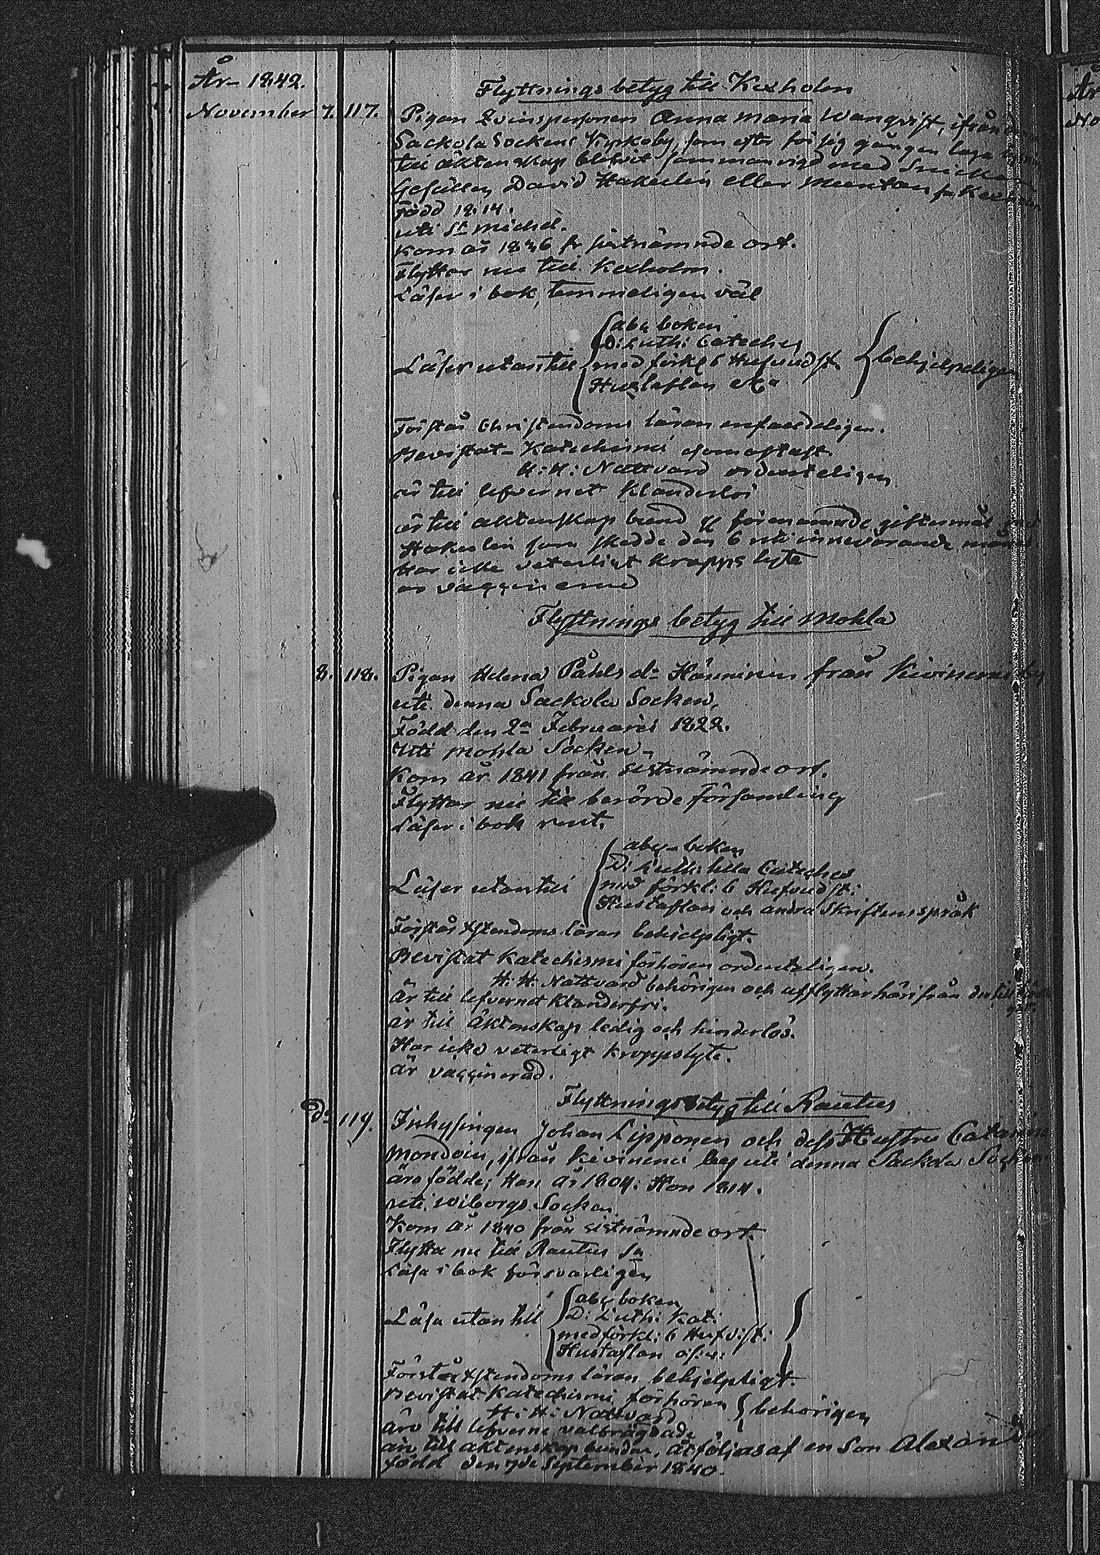 År 1842.
Flyttnings betyg till Kexholm
November 7. 117. Pigan Qvinspersonen Anna Maria Wanqvist, ifrån
Sackola Sockens Kyrkoby, som efter
till äktenskap blifvit sammanvigd med
Gesällen David Hakulin eller
Född 1814.
uti St Michel.
Kom år 1836 fr sistnämnde ort.
Flyttar nu till Kexholm.
Läser i bok temmeligen väl
abc boken
D: Luth: Cateches
Läser utantill med förkl 6 Hufvudst. behjelpeligen
Hustaflan etc
Förstår Christendoms läran enfaldeligen.
Bevistat Katechismi
H: H: Nattvard ordenteligen
är till lefvernet klanderlös
är till äktenskap bund förenämnde giftermål
Hakulin som skedde den 6 uti innevarande månad
Har icke veterligt kropps lyte
är vaggineread
Flyttnings betyg till Mohla
8. 118. Pigan Helena Påhls dr Hänninen från Kiviniemi by
uti denna Sackola Socken,
Född den 2a Februarii 1822.
Uti Mohla Socken
Kom år 1841 från sistnämnde ort.
Flyttar nu till berörde Församling
Läser i bok rent.
abc-boken
D: Luth: lilla Cateches
Läser utantill med förkl: 6 Hufvudst:
Hustaflan och andra Skriftenes språk
Förstår Xstendoms läran behjelpligt.
Bevistat Katechismi förhören ordenteligen.
H: H: Nattvard behörigen och afflyttar härifrån
Är till lefvernet klanderfri.
är till äktenskap ledig och hinderlös.
Har icke veterligt kroppslyte.
är vaggineråd.
Flyttningsbetyg till Rautus
Do 119. Inhysingen Johan Lipponen och dess Hustru Catarina
Mondoin, ifrån Kiviniemi by uti denna Sackola Socken
äro födde, Han år 1804. Hon 1814.
uti Wiborgs Socken
Kom år 1840 från sistnämnde ort.
Flytta nu till Rautus Sn
Läsa i bok försvarligen
abc boken
Läsa utantill D: Luth: Kat:
med förkl: 6 Hufvst:
Hustaflan
Förstår Xstendoms läran behjelpligt.
Bevistat Katechismi förhören
H: H: Nattvard behörigen
äro till lefverne välfrägdade
äro till äktenskap bundne. Åtföljas af en Son Alexander
född den 7de September 1840.